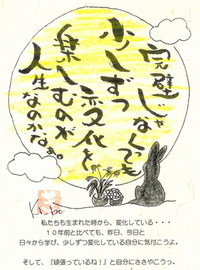 完璧じゃなくっても
少しずつ
変化を
楽しむのが
人生なのかなぁ。
私たちも生まれた時から、変化している・・・
１０年前と比べても、昨日、今日と
日々から学び、少しずつ変化している自分に気付こうよ。
そして、『頑張っているね！』と自分にささやこうっ。